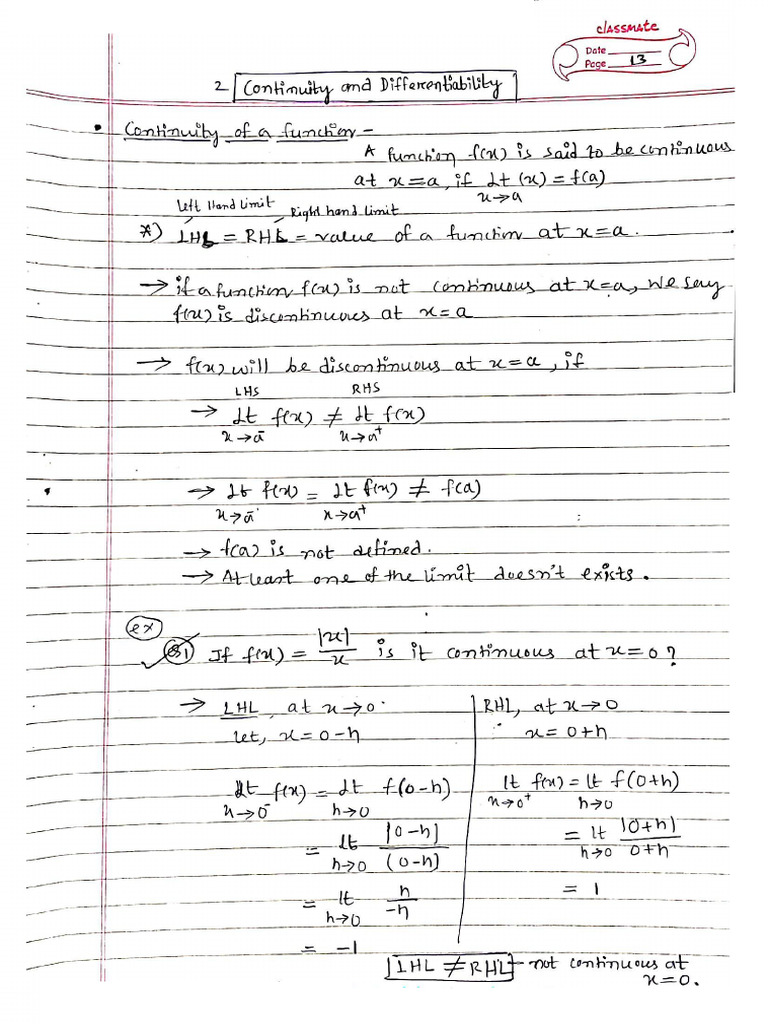 classmate
Date
Page 13
2 Continuity and Differentiability
• Continuity of a function –
A function f(x) is said to be continuous
at x=a, if Lt (x) = f(a)
x→a
Left Hand Limit Right hand limit
*) LHL = RHL = value of a function at x=a.
→ if a function f(x) is not continuous at x=a, we say
f(x) is discontinuous at x=a
→ f(x) will be discontinuous at x=a, if
LHS RHS
→ Lt f(x) ≠ Lt f(x)
x→a⁻ x→a⁺
→ Lt f(x) = Lt f(x) ≠ f(a)
x→a⁻ x→a⁺
→ f(a) is not defined.
→ At least one of the limit doesn't exists.
ex
Q1 If f(x) = |x|/x is it continuous at x=0?
→ LHL, at x→0.
let, x=0-h
Lt f(x) = Lt f(0-h)
x→0⁻ h→0
= Lt |0-h|/(0-h)
h→0
= lt h/-h
h→0
= -1
RHL, at x→0
x=0+h
lt f(x) = lt f(0+h)
x→0⁺ h→0
= lt |0+h|/0+h
h→0
= 1
LHL ≠ RHL – not continuous at
x=0.